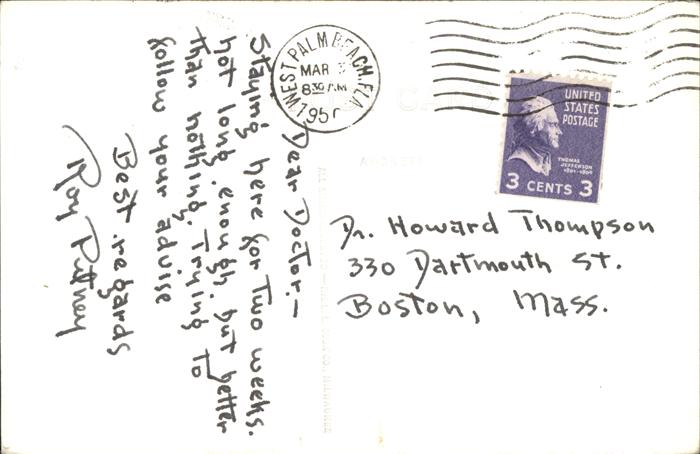 WEST PALM BEACH, FLA
MAR
8 30 AM
195
UNITED
STATES
POSTAGE
THOMAS
JEFFERSON
1801-1809
3 CENTS 3
Dear Doctor:—
Staying here for two weeks.
not long enough, but better
than nothing. Trying to
follow your advise
Best regards
Roy Putney
Dr. Howard Thompson
330 Dartmouth St.
Boston, Mass.